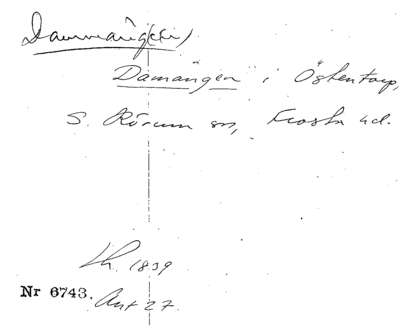 Dammäng(en)
Damängen i Östentorp,
S. Rörum sn, Frosta hd.
Lh. 1839
Nr 6743. Ant 27.